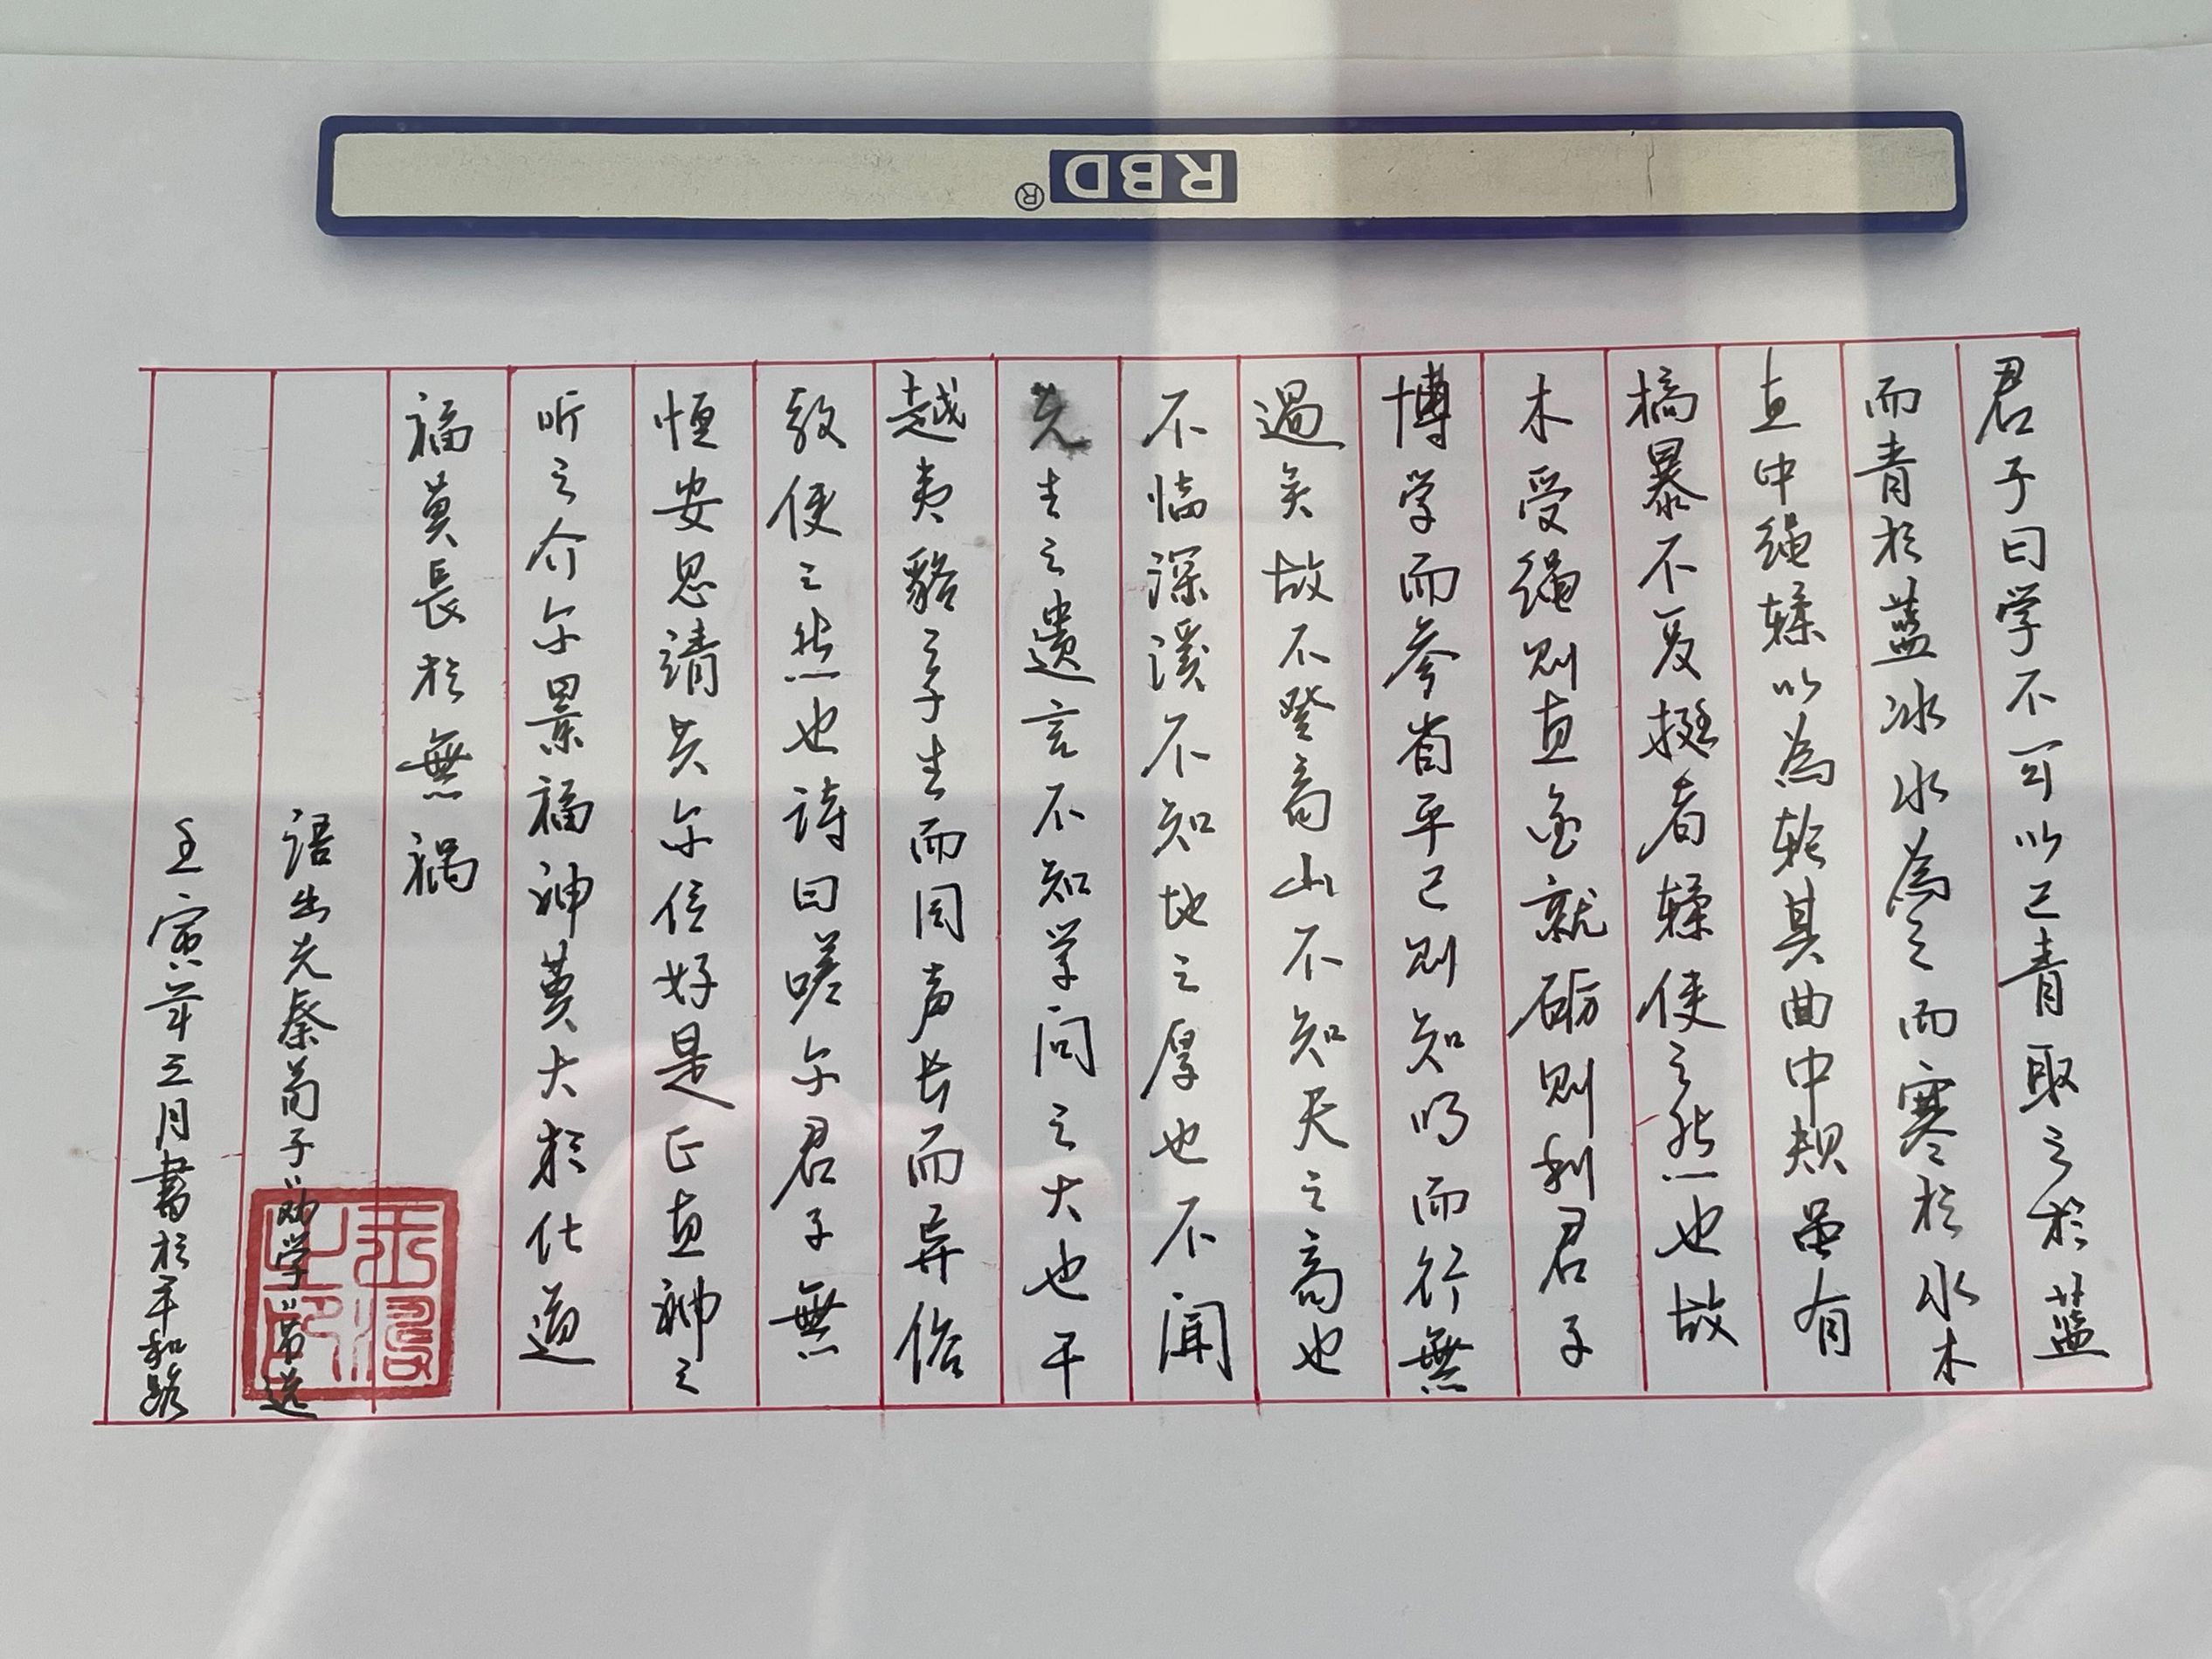 RBD®
君子曰学不可以已青取之於蓝
而青於蓝冰水為之而寒於水木
直中绳輮以為轮其曲中规虽有
槁暴不复挺者輮使之然也故
木受绳则直金就砺则利君子
博学而参省乎己则知明而行無
過矣故不登高山不知天之高也
不临深溪不知地之厚也不闻
先生之遗言不知学问之大也干
越夷貉之子生而同声长而异俗
教使之然也诗曰嗟尔君子無
恒安息靖共尔位好是正直神之
听之介尔景福神莫大於化道
福莫長於無祸
语出先秦荀子"劝学"节选
壬寅年三月書於平和路